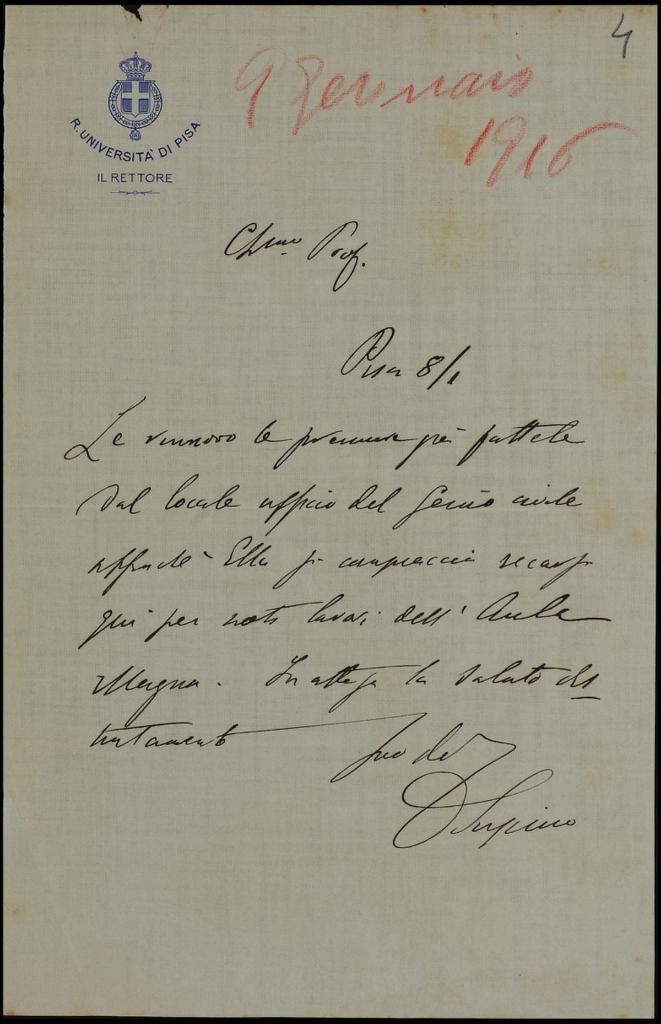 4
9 Gennaio
1916
R. UNIVERSITÀ DI PISA
IL RETTORE
Ch.mo Prof.
Pisa 8/1
Le rinnovo le premure già fattele
dal locale ufficio del Genio civile
affinchè Ella si compiaccia recarsi
qui per noti lavori dell'Aula
Magna. In attesa la saluto dis
tintamente
Suo dev
D Supino